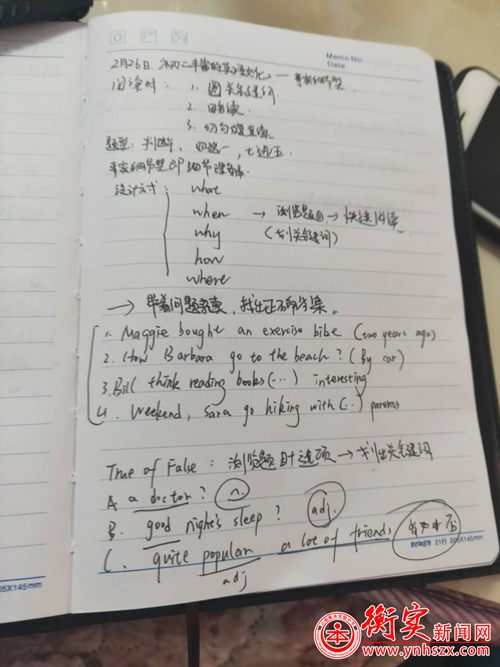 Memo No.
Date
2月26日
阅读时: 1. 圈关键词
2. 略读
3.
题型: 判断, 四选一, 七选五.
事实细节型即细节理解
设计方式:
what
when → 浏览题目 → 快速阅读
why (划关键词)
how
where
→ 带着问题 找出正确答案。
1. Maggie bought an exercise bike (two years ago)
2. How Barbara go to the beach? (By car)
3. Bill think reading books (...) interesting
4. Weekend, Sara go hiking with (...) parents
True of False: 浏览题 选项 → 划出关键词
A a doctor? n.
B. good nighe's sleep? adj.
C. quite popular a lot of friends
adj
21行 205X145mm
205X145mm
衡实新闻网
www.ynhszx.com